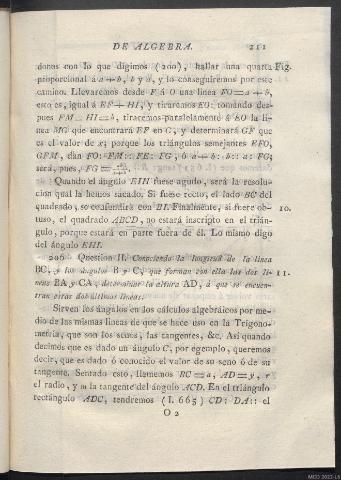 DE ALGEBRA. 211
donos con lo que digimos (200), hallar una quarta Fig.
proporcional á a+b, b y a, y lo conseguiremos por este
camino. Llevaremos desde F á O una linea FO=a+b,
esto es, igual á EF+HI, y tiraremos EO: tomando des-
pues FM=HI=b, tiraremos paralelamente á EO la lí-
nea MG que encontrará EF en G, y determinará GF que
es el valor de x; porque los triángulos semejantes EFO,
GFM, dan FO: FM:: FE: FG, ó a+b: b:: a: FG;
será, pues, FG=
Quando el ángulo EIH fuese agudo, será la resolu-
cion qual la hemos sacado. Si fuese recto, el lado BC del
quadrado, se confundirá con BI. Finalmente, si fuere ob- 10.
tuso, el quadrado ABCD, no estará inscripto en el trián-
gulo, porque estará en parte fuera de él. Lo mismo digo
del ángulo EHI.
206 Question II. Conociendo la longitud de la linea
BC, y los ángulos B y C, que forman con ella las dos lí- 11.
neas BA y CA, determinar la altura AD, á que se encuen-
tran estas dos últimas líneas.
Sirven los ángulos en los cálculos algebráicos por me-
dio de las mismas lineas de que se hace uso en la Trigono-
metría, que son los senos, las tangentes, &c. Así quando
decimos que es dado un ángulo C, por egemplo, queremos
decir, que es dado ó conocido el valor de su seno ó de su
tangente. Sentado esto, llamemos BC=a, AD=y, r
el radio, y m la tangente del ángulo ACD. En el triángulo
rectángulo ADC, tendremos (I. 665) CD: DA:: el
O 2